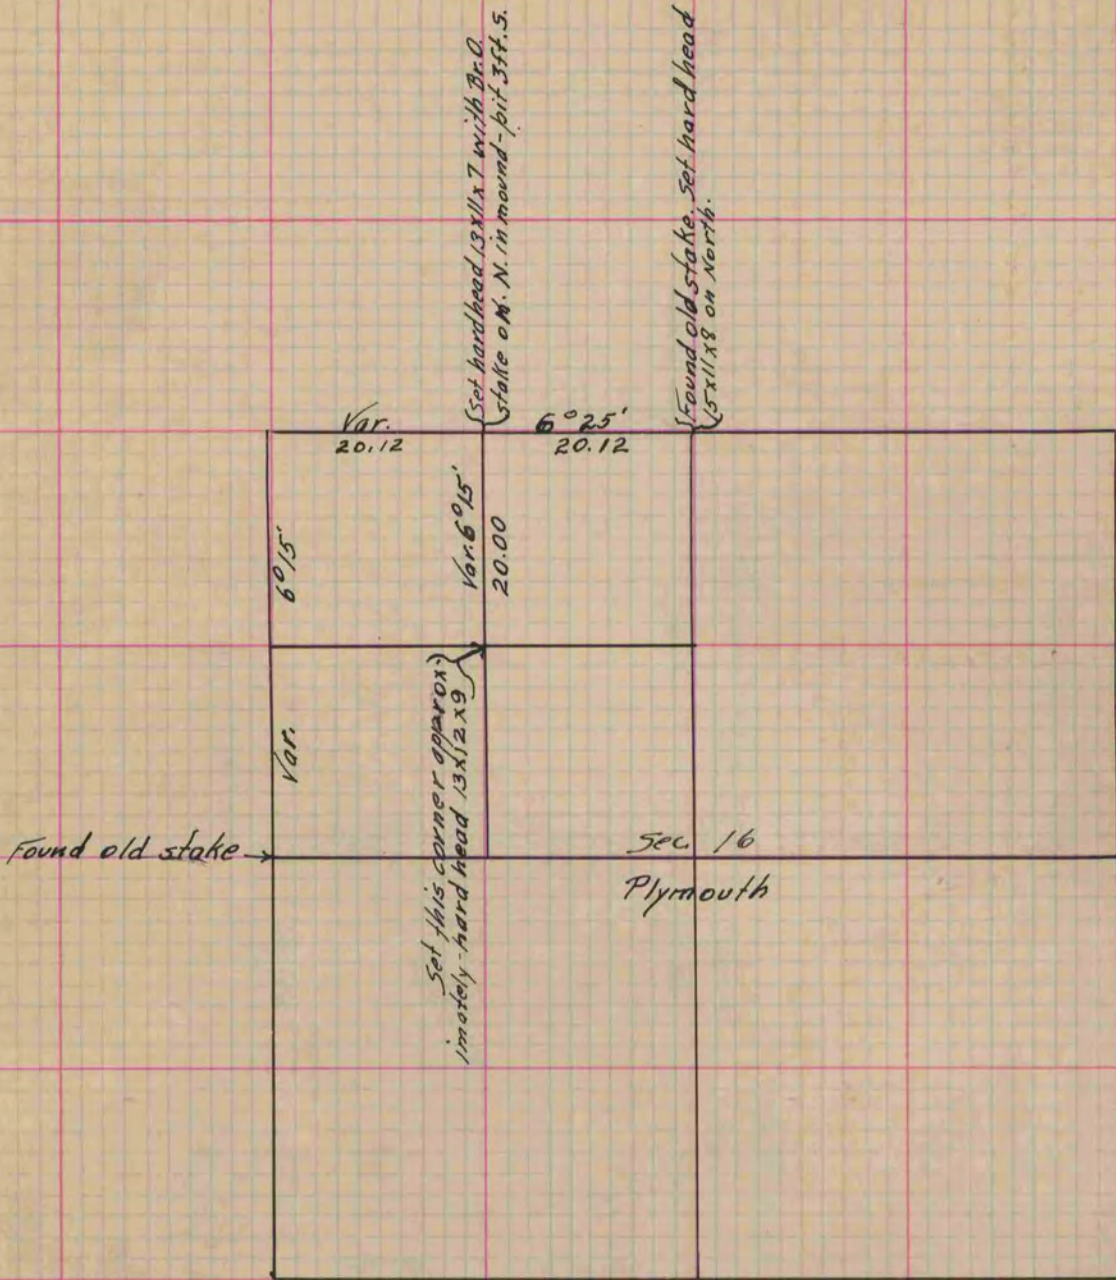 Set hardhead 13x11x7 with Br.O.
stake on N. in mound-pit 3ft.S.
Found old stake. Set hard head
15x11x8 on North.
Var. 6°25'
20.12 20.12
6°15'
Var.
Var. 6°15'
20.00
Set this corner approx-
imately-hard head 13x12x9
Found old stake
Sec. 16
Plymouth